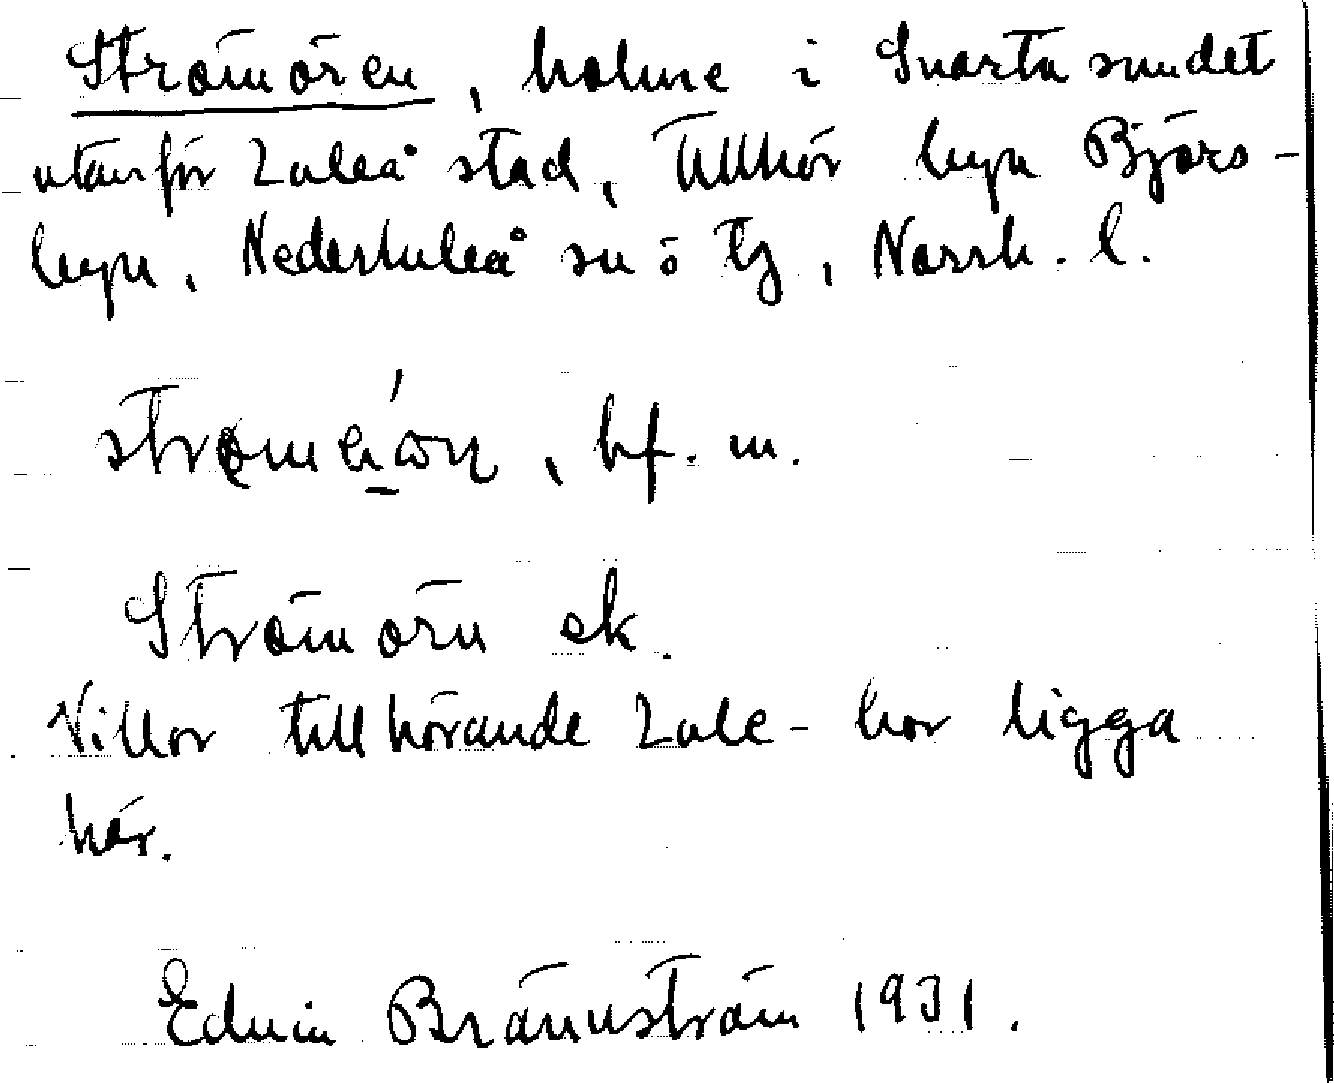 Strömören, holme i Svartsundet
utanför Luleå stad, Tillhör byn Björs-
byn, Nederluleå sn o tg, Norrb. l.
bf. m.
Strömörn ek.
Villor tillhörande Lule-bor ligga
här.
Edvin Brännström 1931.